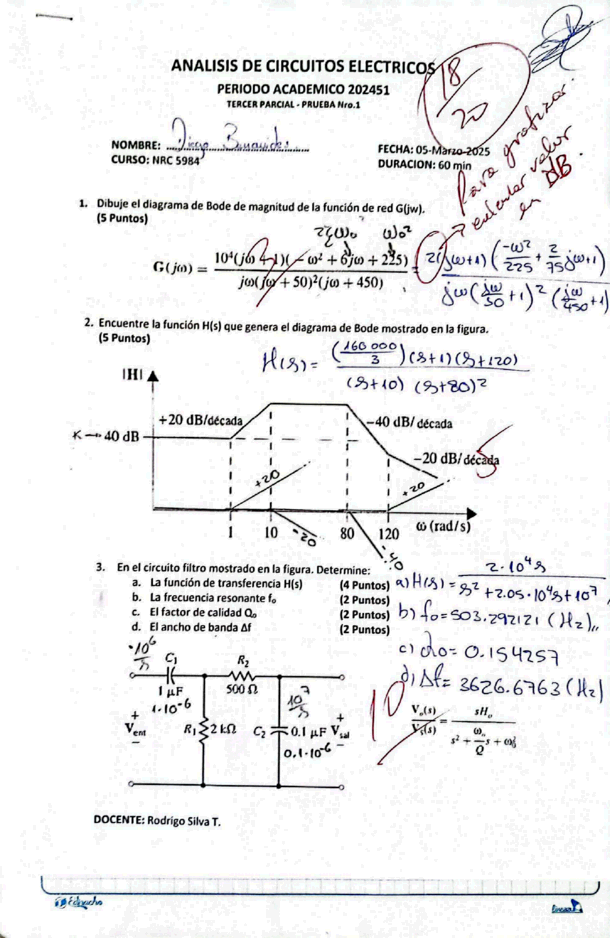 ANALISIS DE CIRCUITOS ELECTRICOS
PERIODO ACADEMICO 202451
TERCER PARCIAL - PRUEBA Nro.1
18/20
Para graficar
calcular valor
en dB.
NOMBRE: Diego
FECHA: 05-Marzo-2025
CURSO: NRC 5984
DURACION: 60 min
1. Dibuje el diagrama de Bode de magnitud de la función de red G(jw).
(5 Puntos)
2ζω₀ ω₀²
G(jω) = 10⁴(jω + 1)(-ω² + 6jω + 225) / jω(jω + 50)²(jω + 450) = 2(jω+1)(-ω²/225 + 2/75 jω+1) / jω(jω/50 +1)²(jω/450 +1)
2. Encuentre la función H(s) que genera el diagrama de Bode mostrado en la figura.
(5 Puntos)
H(s) = (160 000/3)(s+1)(s+120) / (s+10)(s+80)²
|H|
+20 dB/década
-40 dB/ década
K → 40 dB
-20 dB/ década
5
+20
+20
1 10 80 120 ω (rad/s)
-20
-40
3. En el circuito filtro mostrado en la figura. Determine:
a. La función de transferencia H(s) (4 Puntos)
a) H(s) = 2·10⁴s / s² + 2.05·10⁴s + 10⁷
b. La frecuencia resonante f₀ (2 Puntos)
b) f₀ = 503.292121 (Hz),,
c. El factor de calidad Q₀ (2 Puntos)
d. El ancho de banda Δf (2 Puntos)
c) Q₀ = 0.154257
d) Δf = 3626.6763 (Hz)
10
10⁶/s
C₁ R₂
1 μF 500 Ω 10⁷/s
1·10⁻⁶
+ Vent - R₁ 2 kΩ C₂ 0.1 μF + Vsal -
0,1·10⁻⁶
Vo(s)/Vi(s) = sHo / s² + ωo/Q s + ωo²
DOCENTE: Rodrigo Silva T.
Estuucho